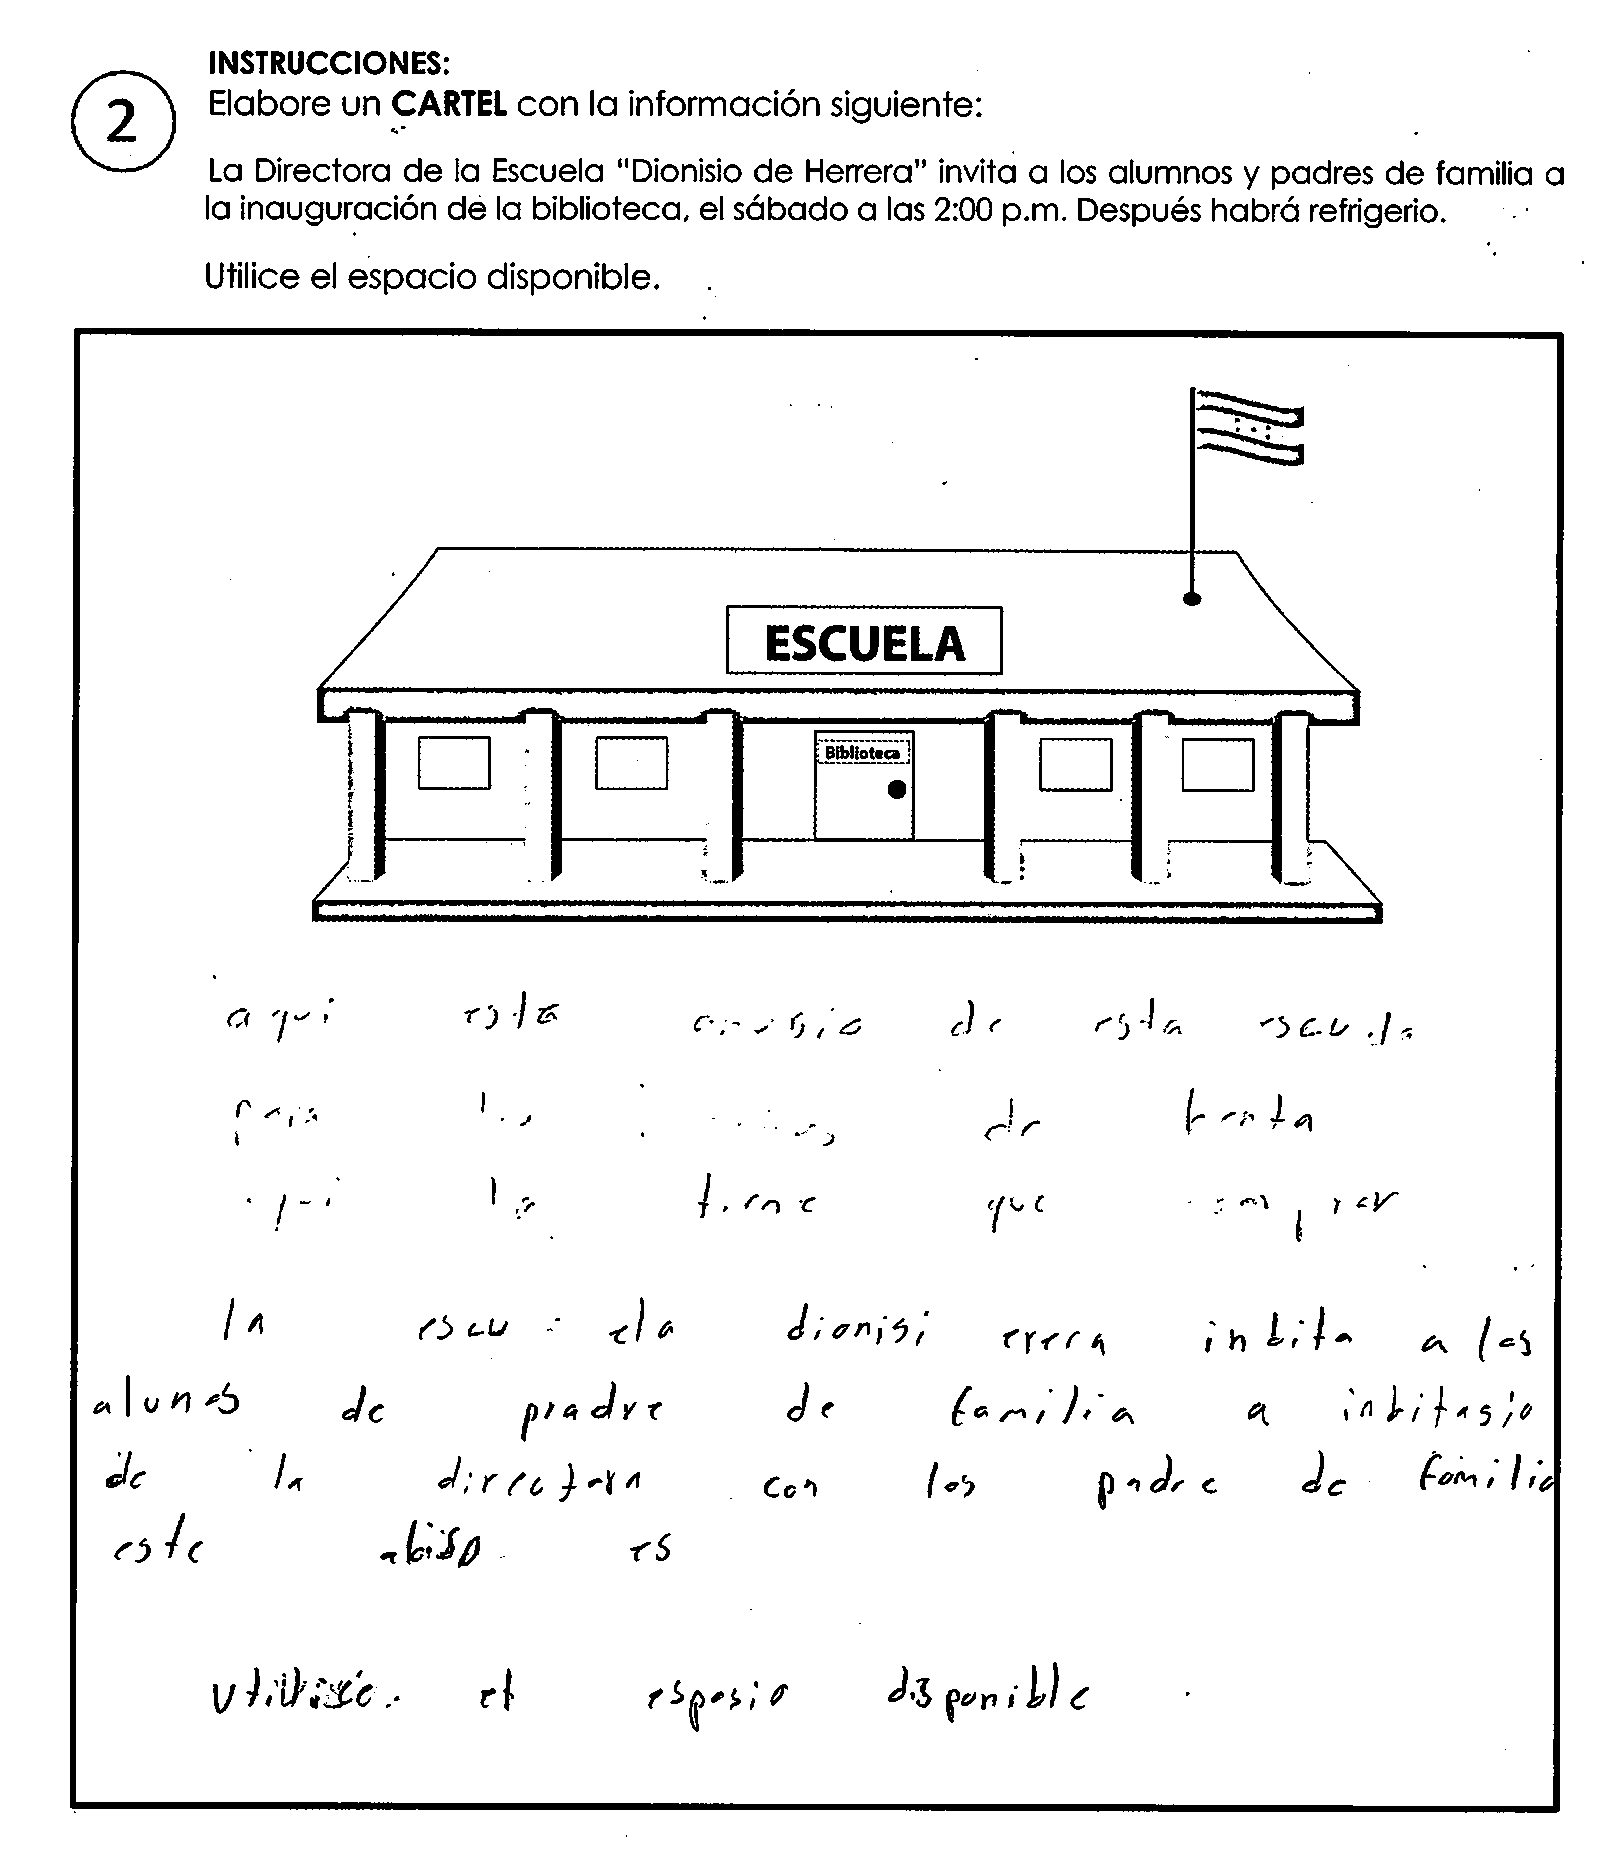 INSTRUCCIONES:
2
Elabore un CARTEL con la información siguiente:
La Directora de la Escuela "Dionisio de Herrera" invita a los alumnos y padres de familia a
la inauguración de la biblioteca, el sábado a las 2:00 p.m. Después habrá refrigerio.
Utilice el espacio disponible.
ESCUELA
Biblioteca
aqui esta de esta escuela
para de benta
la tiene que
la escu ela dionisi erera inbita a los
alunos de pradre de familia a inbitasio
de la directora con los padre de familia
este abiso es
el espasio disponible